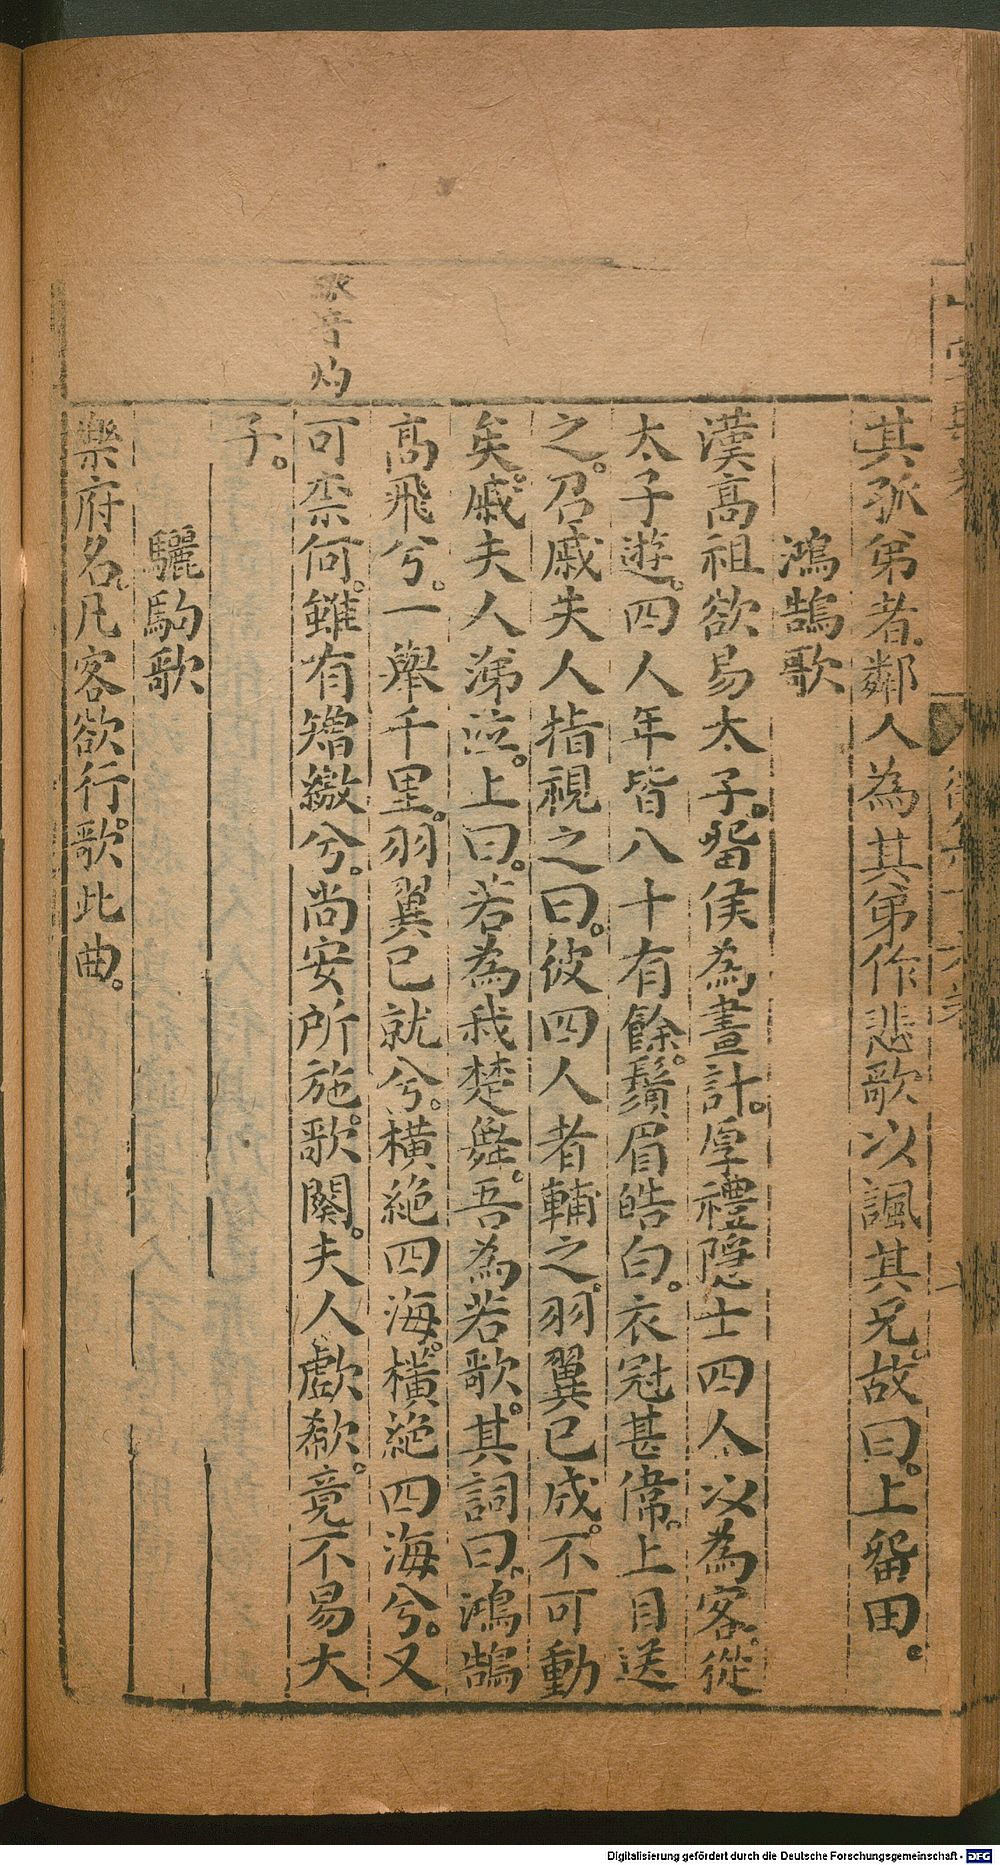 其孤弟者鄰人為其弟作悲歌以諷其兄故曰。上留田。
鴻鵠歌
漢高祖欲易太子。留侯為畫計。厚禮隱士四人以為客。從
太子遊。四人年皆八十有餘。鬚眉皓白。衣冠甚偉。上目送
之。召戚夫人指視之曰。彼四人者輔之。羽翼已成。不可動
矣。戚夫人涕泣。上曰。若為我楚舞。吾為若歌。其詞曰。鴻鵠
高飛兮。一舉千里。羽翼已就兮。橫絕四海。橫絕四海兮。又
可柰何。雖有矰繳兮。尚安所施。歌闋。夫人歔欷。竟不易大
子。
驪駒歌
樂府名。凡客欲行。歌此曲。
音灼
Digitalisierung gefördert durch die Deutsche Forschungsgemeinschaft - DFG